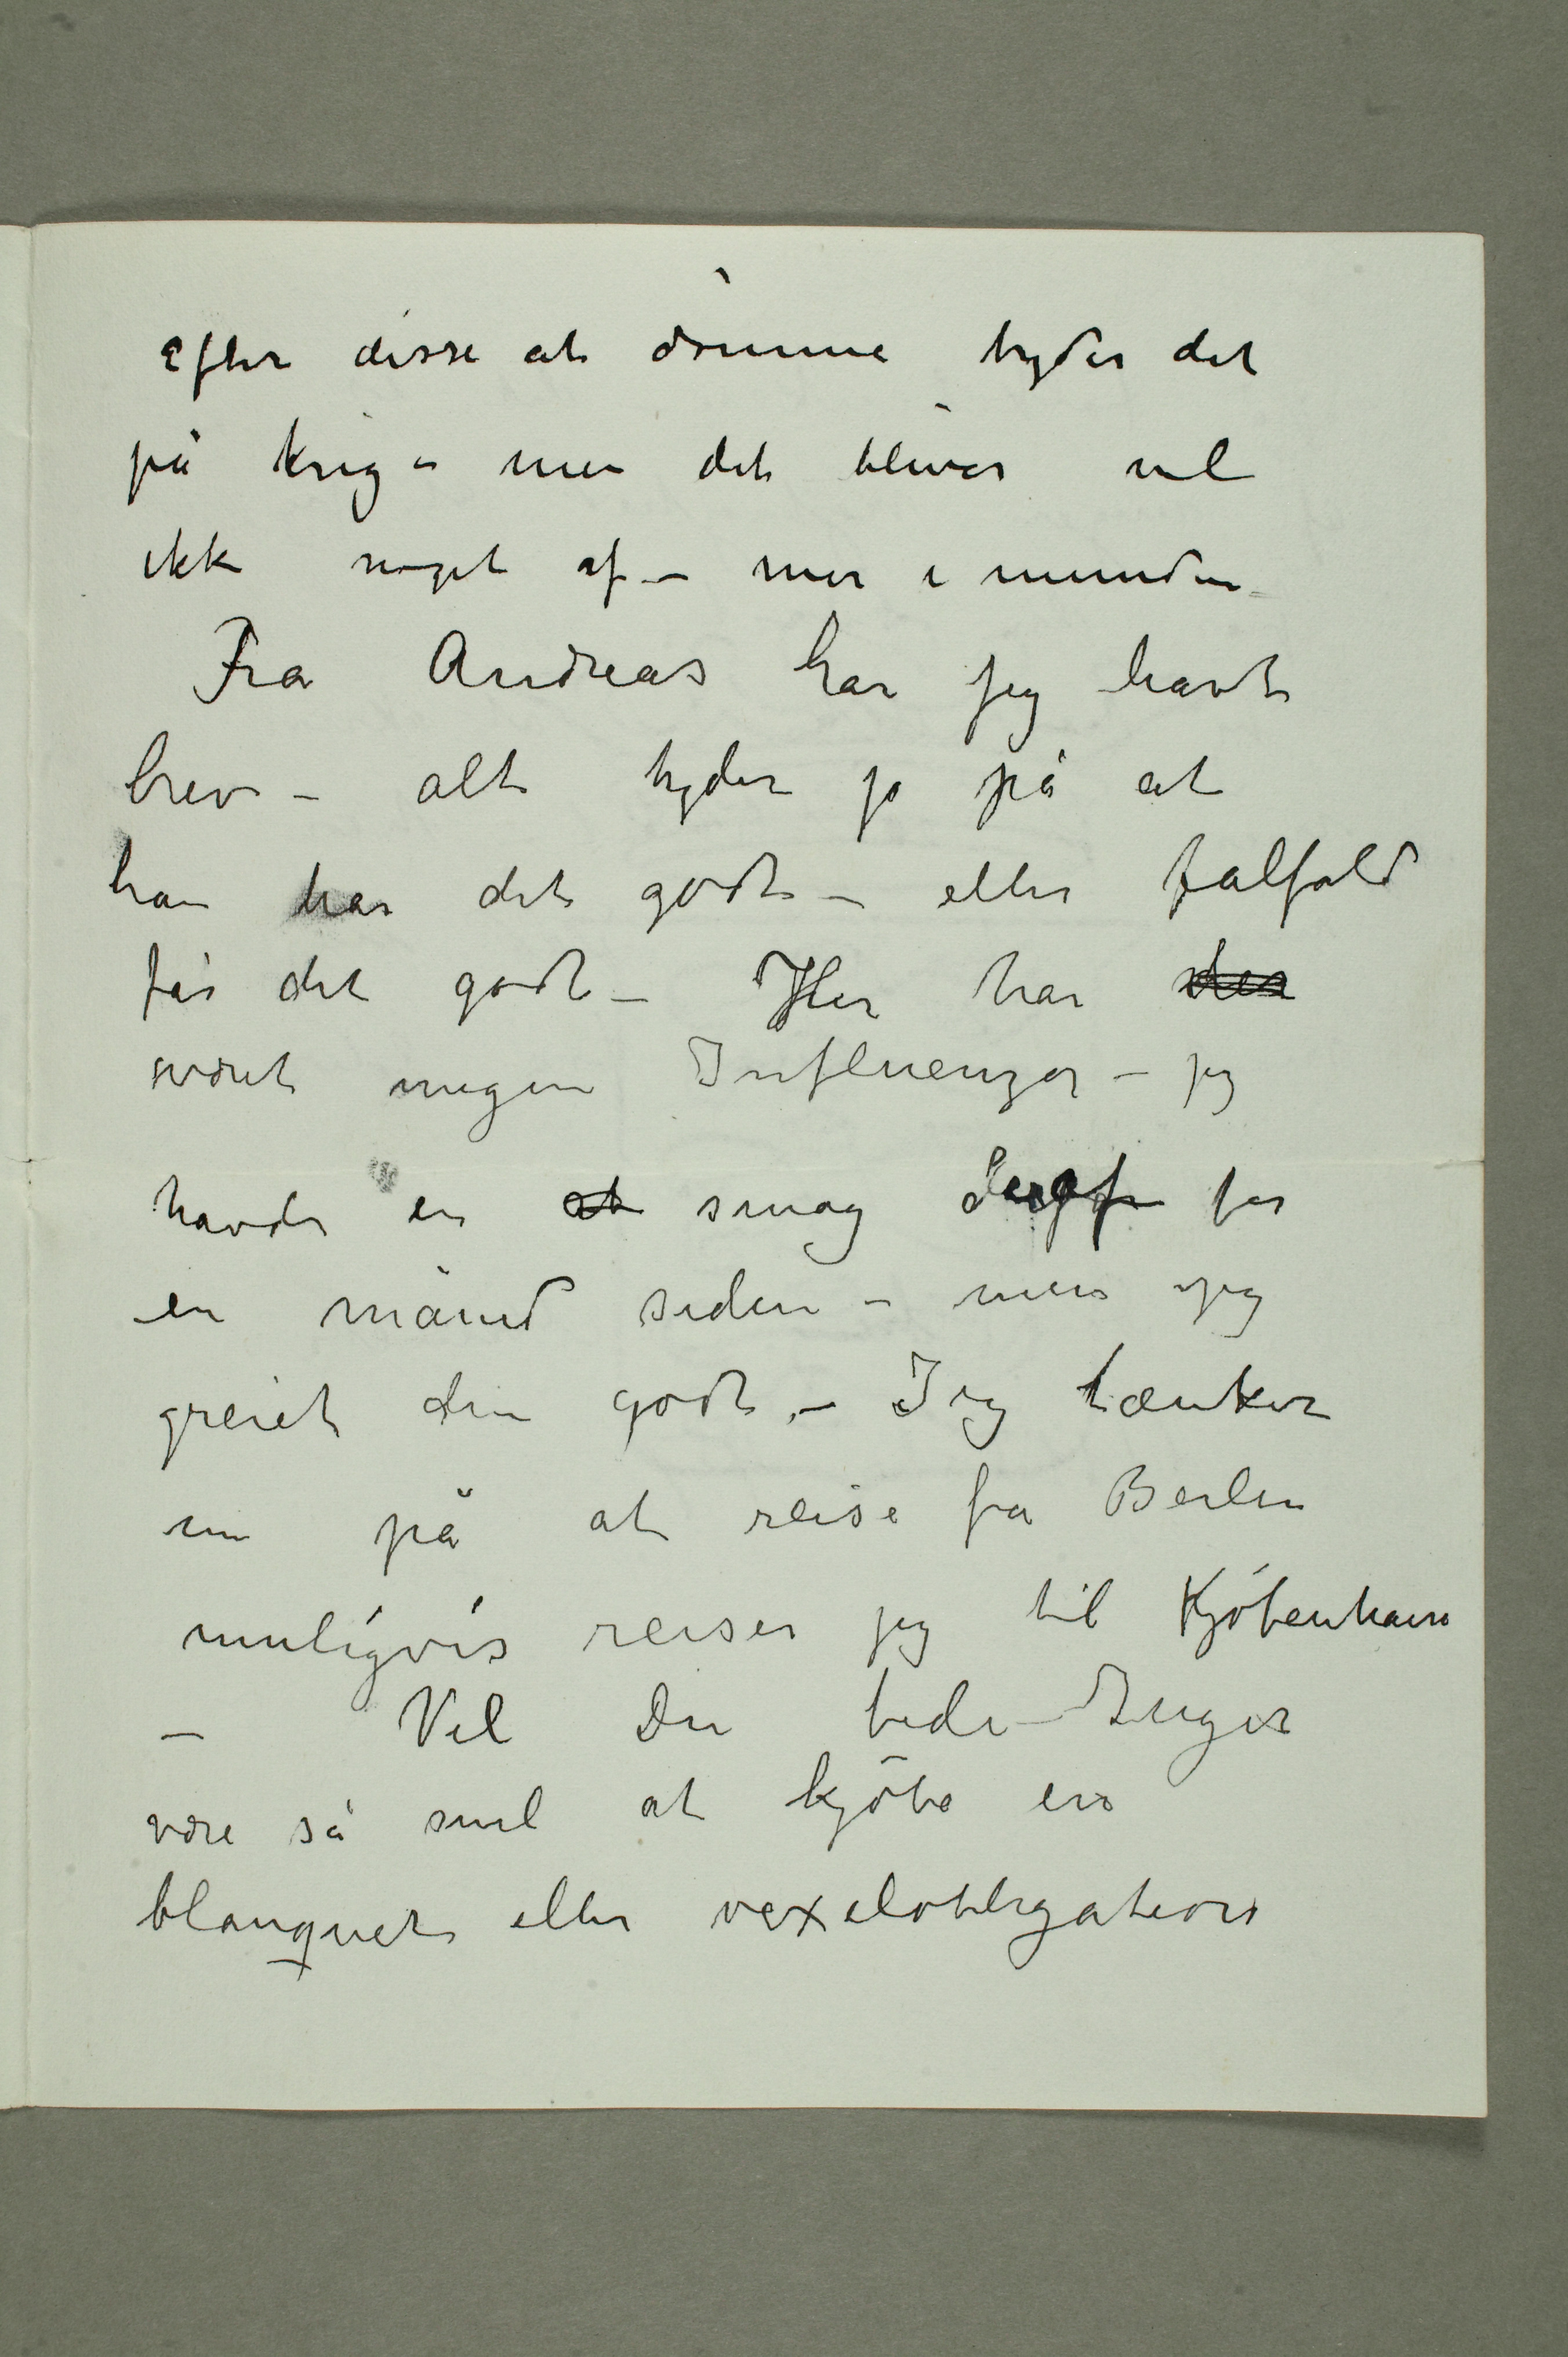 efter disse at dømme tyder det
på krig – men det bliver vel
ikke noget af – mer i munden –
Fra Andreas har jeg havt
brev – alt tyder jo på at
han har det godt – eller ialfald
får det godt – Her har der
været megen Influenza – jeg
havde en st smag deraf for
en måned siden – men jeg
greiet den godt, – Jeg tænker
nu på at reise fra Berlin
muligvis reiser jeg til Kjøbenhavn
– Vil Du bede Inger
være så snil at kjøbe en
blanquet eller vexelobligation